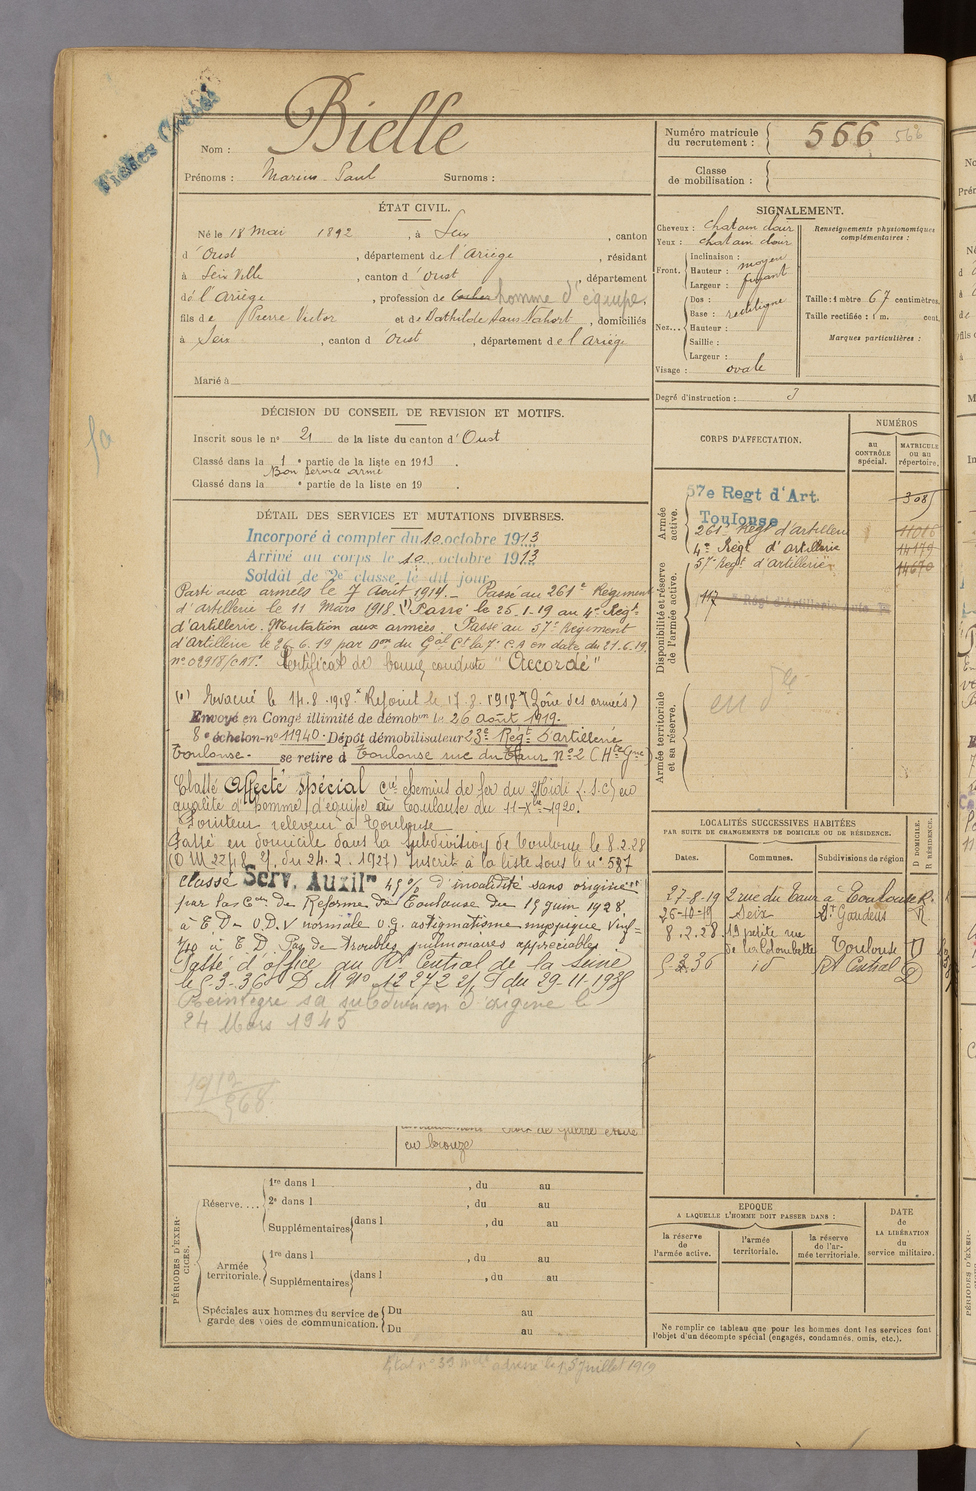 Fiches
Nom : Bielle
Prénoms : Marius Paul Surnoms :
Numéro matricule
du recrutement : 566 566
Classe
de mobilisation :
ÉTAT CIVIL.
Né le 18 Mai 1892, à Seix, canton
d'Oust, département de l'Ariège, résidant
à Seix Ville, canton d'Oust, département
de l'Ariège, profession de homme d'équipe.
fils de Pierre Victor et de Mathilde Sans Nahort, domiciliés
à Seix, canton d'Oust, département de l'ariège
Marié à
SIGNALEMENT.
Cheveux : chatain clair
Yeux : chatain clair
Front. Inclinaison :
Hauteur : moyen
Largeur : fuyant
Nez... Dos :
Base : rectiligne
Hauteur :
Saillie :
Largeur :
Visage : ovale
Renseignements physionomiques
complémentaires :
Taille : 1 mètre 67 centimètres.
Taille rectifiée : 1 m. cent.
Marques particulières :
Degré d'instruction : 3
DÉCISION DU CONSEIL DE REVISION ET MOTIFS.
Inscrit sous le n° 21 de la liste du canton d'Oust
Classé dans la 1e partie de la liste en 1913.
Bon Service armé
Classé dans la e partie de la liste en 19 .
DÉTAIL DES SERVICES ET MUTATIONS DIVERSES.
Incorporé à compter du 10 octobre 1913
Arrivé au corps le 10 octobre 1913
Soldat de 2e classe le dit jour
Parti aux armées le 7 Août 1914.- Passé au 261e Régiment
d'artillerie le 11 Mars 1918. (1) Passé le 26.1.19 au 4e Régt
d'artillerie. Mutation aux armées. Passé au 57e Régiment
d'artillerie le 26.6.19 par Don du Gal Ct la 7e C.A en date du 21.6.19
n° 02918/CAT. Certificat de bonne conduite "Accordé"
(1) Evacué le 14.8.1918 x Rejoint le 17.8.1918 x (Zône des armées)
Envoyé en Congé illimité de démobon le 26 août 1919.
8e échelon n° 11940. Dépôt démobilisateur 23e Régt D'artillerie
Toulouse. se retire à Toulouse rue du Taur n° 2 (Hte Gne)
Classé Affecté spécial Cie chemins de fer du Midi S.S.C) en
qualité d'homme d'équipe à Toulouse du 11-Xbre-1920.
Pointeur releveur à Toulouse
Passé en domicile dans la subdivision de Toulouse le 8.2.28
(D M 2248 du 24.2.1927) Inscrit à la liste sous le n° 587
Classé Serv. Auxilre 45% d'invalidité sans origine
par la Con de Réforme de Toulouse du 15 juin 1928
à T D - O.D.V normale O.G. astigmatisme myopique
1/10 à T D Pas de troubles pulmonaires appréciables
Passé d'office au Rt Central de la Seine
le 5-3-36 D M N° 12272 du 29-11-1935
Réintègre sa subdivision d'origine le
24 Mars 1945
1912
568
Croix de Guerre étoile
en bronze
CORPS D'AFFECTATION.
NUMÉROS
au
CONTRÔLE
spécial.
MATRICULE
ou au
répertoire.
Armée
active.
57e Regt d'Art.
Toulouse
308
261e Régt d'artillerie 11016
4e Régt d'artillerie 14179
57e Regt d'artillerie 14670
Disponibilité et réserve
de l'armée active.
117e Régt d'Artillerie
Armée territoriale
et sa réserve.
en
LOCALITÉS SUCCESSIVES HABITÉES
PAR SUITE DE CHANGEMENTS DE DOMICILE OU DE RÉSIDENCE.
Dates. Communes. Subdivisions de région D DOMICILE. R RÉSIDENCE.
27-8-19 2 rue du Taur à Toulouse R.
26-10-19 Seix St Gaudens R
8.2.28 19 petite rue
de la Colombette Toulouse D
5-3-36 id Rt Central D
PÉRIODES D'EXERCICES.
Réserve.... 1re dans l , du au
2e dans l , du au
Supplémentaires dans l , du au
Armée
territoriale. 1re dans l , du au
Supplémentaires dans l , du au
Spéciales aux hommes du service de
garde des voies de communication. Du au
Du au
EPOQUE
A LAQUELLE L'HOMME DOIT PASSER DANS :
la réserve
de
l'armée active.
l'armée
territoriale.
la réserve
de l'armée territoriale.
DATE
de
LA LIBÉRATION
du
service militaire.
Ne remplir ce tableau que pour les hommes dont les services font
l'objet d'un décompte spécial (engagés, condamnés, omis, etc.).
Etat n° 39 adressé le 15 Juillet 1919